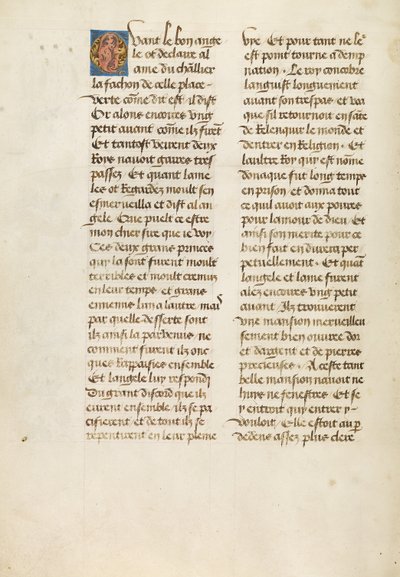 Quant le bon ange
le ot declaire al
ame du chlier
la fachon de celle place
verte come dit est il dist
Or alons encores ung
petit avant come ilz furent
Et tantost veirent deux
Roys navoit gaires tres
passez Et quant lame
les ot Regardez moult sen
esmerveilla et dist al an
gele Que puelt ce estre
mon chier sire que ie voy
Ces deux grans princes
qui la sont furent moult
terribles et moult cremus
en leur temps et grans
ennemis lun a lautre mais
par quelle desserte sont
ilz ainsi la parvenus ne
comment furent ilz onc
ques Rappaisies ensemble
Et langele luy respondi
Du grant discord que ilz
eurent ensemble ilz se pa
cifierent et de tout ilz se
repentirent en leur pleine
vie Et pour tant ne le
est point tourne a damp
nation Le roy concobre
languist longuement
avant son trespas et voa
que sil retournoit en sante
de Relenquir le monde et
dentrer en Religion Et
laultre Roy qui est nome
donaque fut long temps
en prison et donna tout
ce quil avoit aux povres
pour lamour de dieu Et
ainsi son merite pour ce
bien fait endurera per
petuellement Et quant
langele et lame furent
alez encores ung petit
avant Ilz trouverent
une mansion merveilleu
sement bien ouvree dor
et dargent et de pierres
precieuses A ceste tant
belle mansion navoit ne
huis ne fenestres Et se
y entroit qui entrer y
vouloit Elle estoit au par
dedens assez plus clere